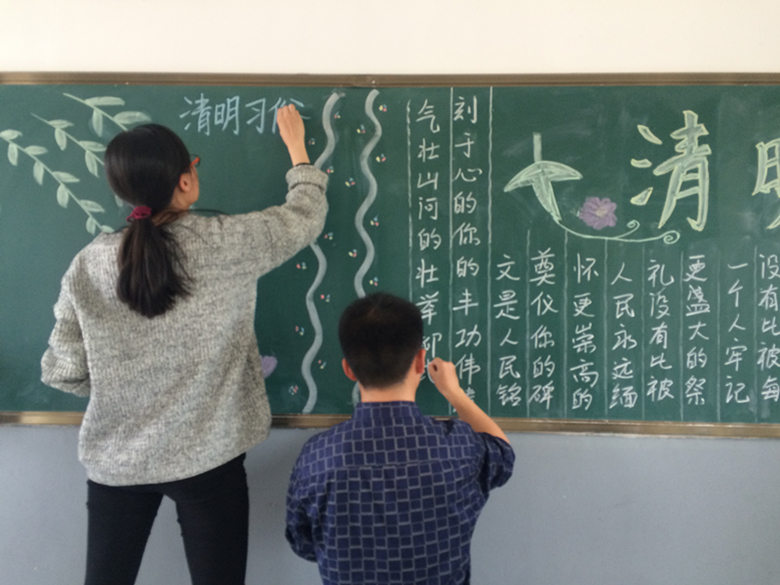 清明习俗
清
没有比被每
一个人牢记
更盛大的祭
礼没有比被
人民永远缅
怀更崇高的
奠仪你的碑
文是人民铭
刻于心的你的丰功伟
气壮山河的壮举